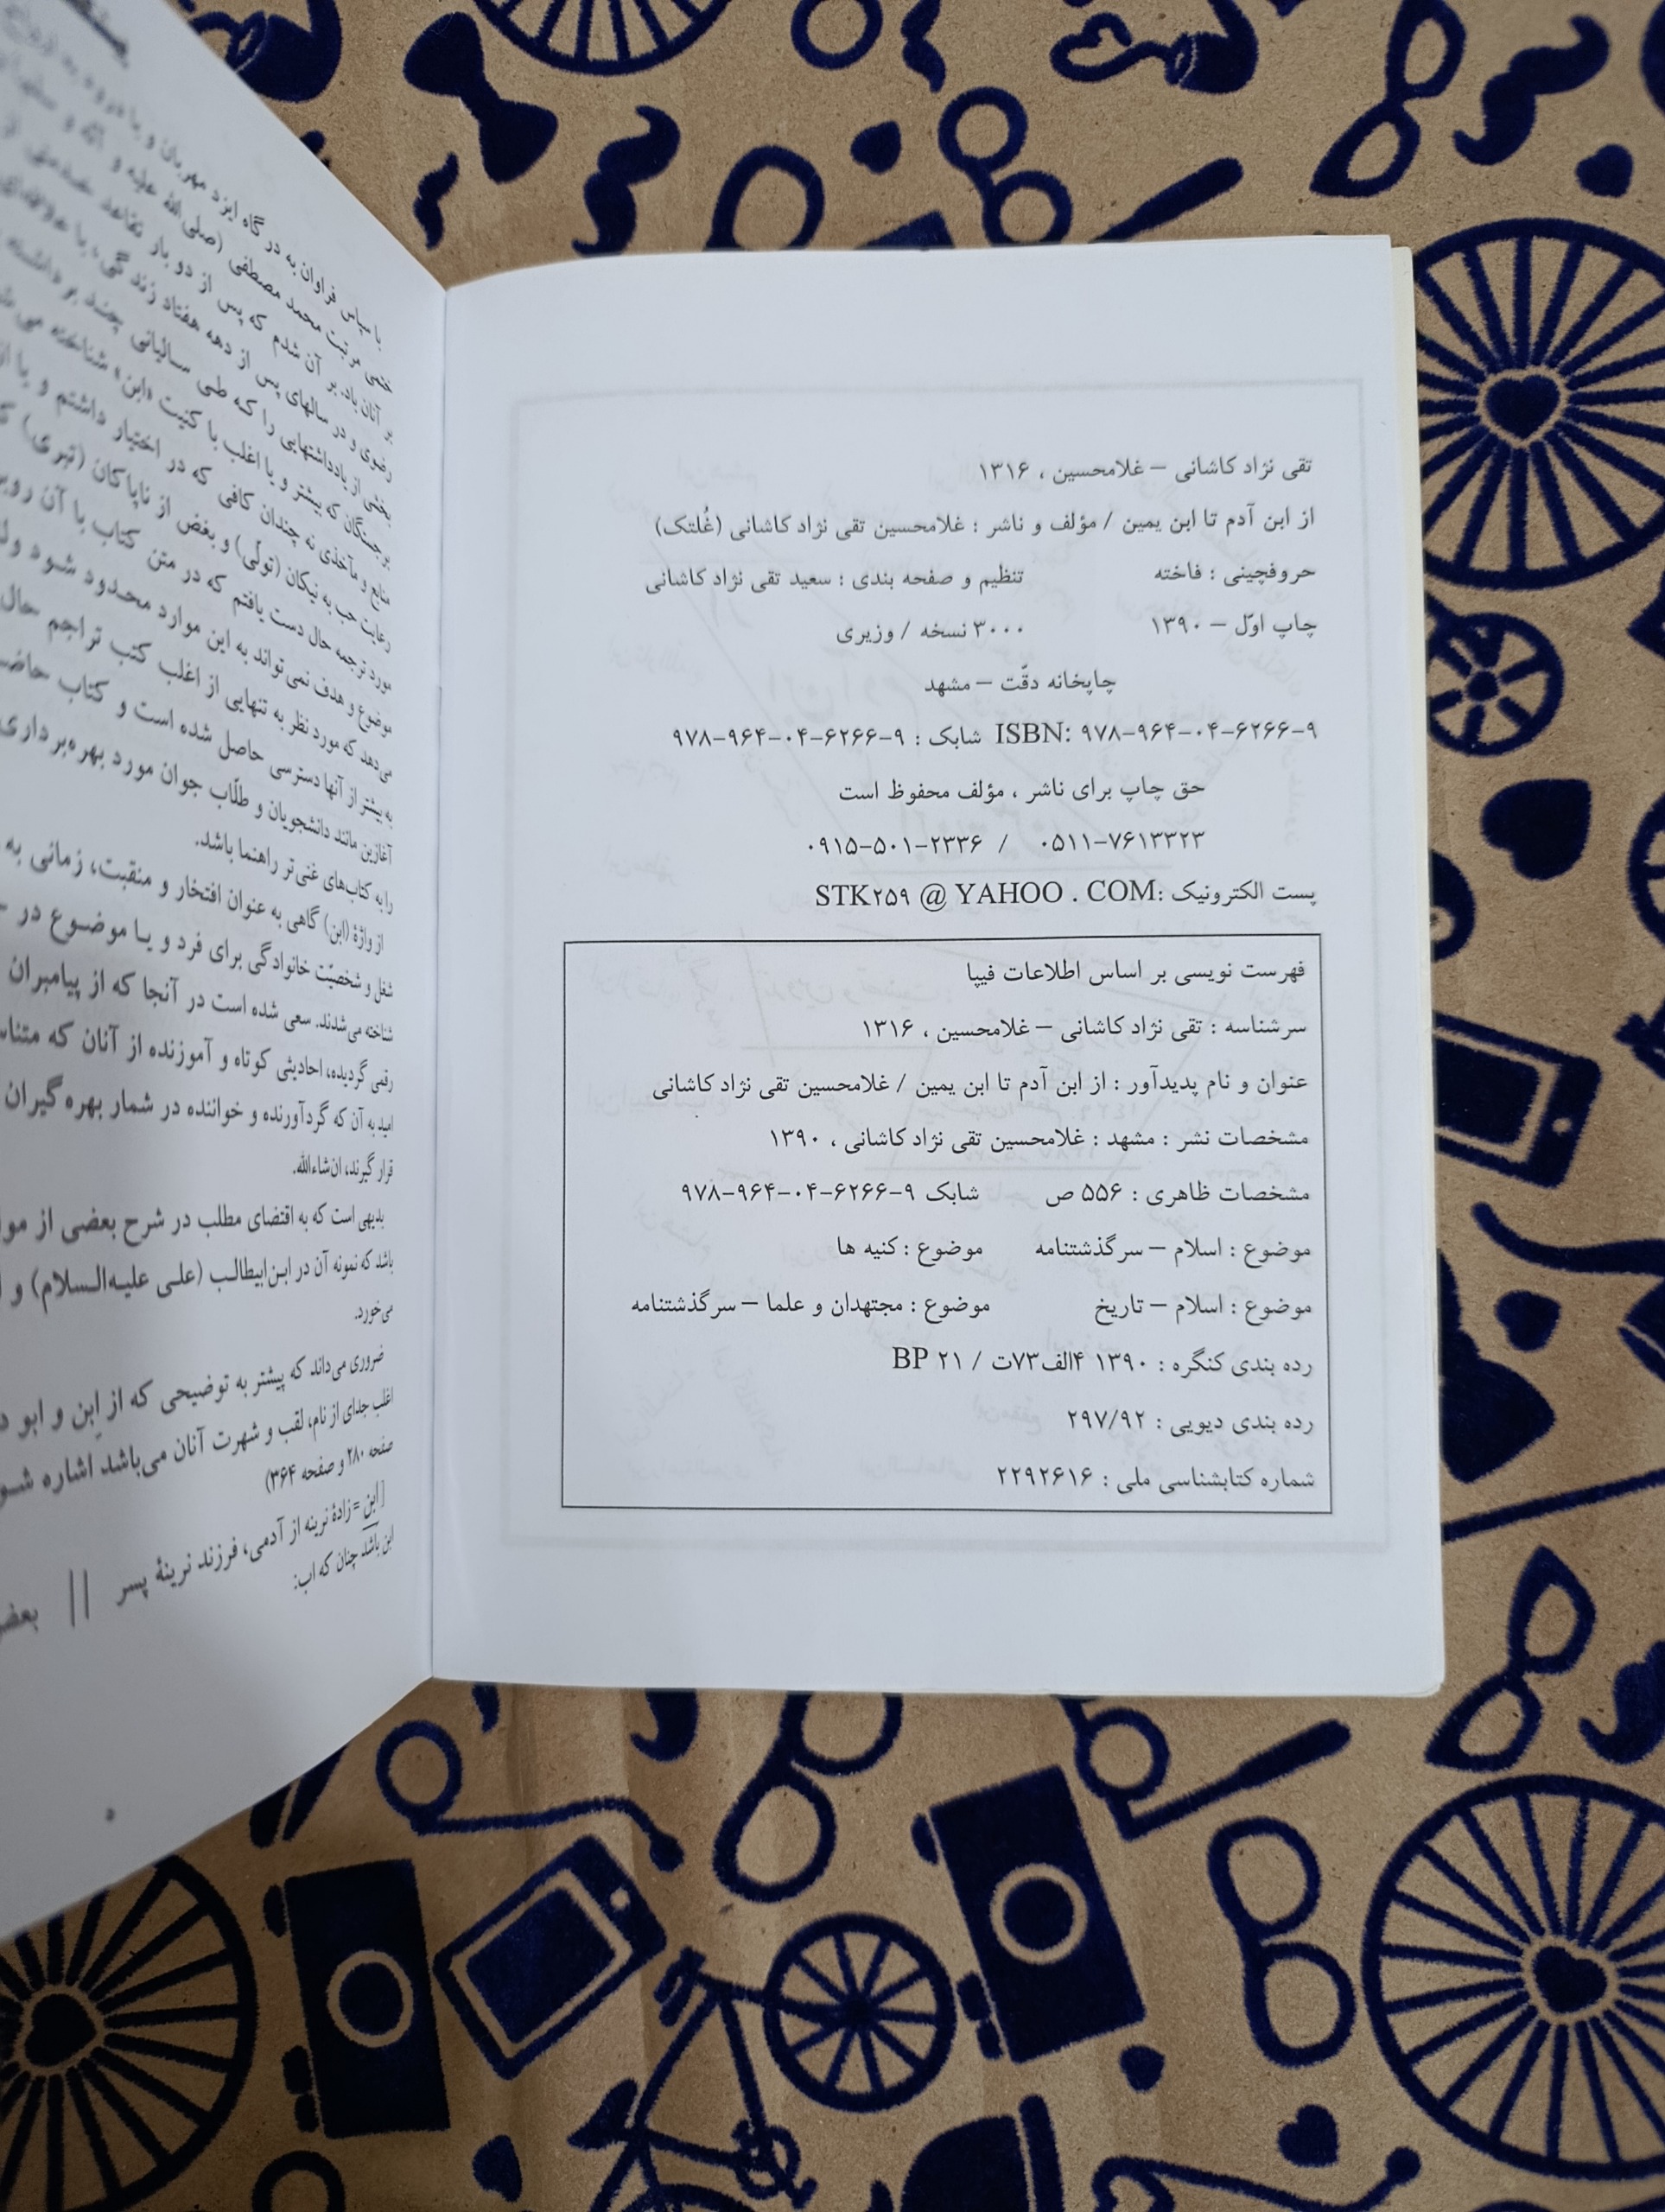 تقی نژاد کاشانی – غلامحسین ، ۱۳۱۶
از ابن آدم تا ابن یمین / مؤلف و ناشر : غلامحسین تقی نژاد کاشانی (غُلتک)
حروفچینی : فاخته تنظیم و صفحه بندی : سعید تقی نژاد کاشانی
چاپ اوّل – ۱۳۹۰ ۳۰۰۰ نسخه / وزیری
چاپخانه دقّت – مشهد
ISBN: ۹۷۸-۹۶۴-۰۴-۶۲۶۶-۹ شابک : ۹۷۸-۹۶۴-۰۴-۶۲۶۶-۹
حق چاپ برای ناشر ، مؤلف محفوظ است
۰۵۱۱-۷۶۱۳۳۲۳ / ۰۹۱۵-۵۰۱-۲۳۳۶
پست الکترونیک :STK۲۵۹ @ YAHOO . COM
فهرست نویسی بر اساس اطلاعات فیپا
سرشناسه : تقی نژاد کاشانی – غلامحسین ، ۱۳۱۶
عنوان و نام پدیدآور : از ابن آدم تا ابن یمین / غلامحسین تقی نژاد کاشانی
مشخصات نشر : مشهد : غلامحسین تقی نژاد کاشانی ، ۱۳۹۰
مشخصات ظاهری : ۵۵۶ ص شابک ۹-۶۲۶۶-۰۴-۹۶۴-۹۷۸
موضوع : اسلام – سرگذشتنامه موضوع : کنیه ها
موضوع : اسلام – تاریخ موضوع : مجتهدان و علما – سرگذشتنامه
رده بندی کنگره : ۱۳۹۰ ۴الف۷۳ت / ۲۱ BP
رده بندی دیویی : ۲۹۷/۹۲
شماره کتابشناسی ملی : ۲۲۹۲۶۱۶
با سپاس فراوان به در گاه ایزد مهربان و با درود به
ختمی مرتبت محمد مصطفی (صلی الله علیه و آله و
بر آنان باد. بر آن شدم که پس از دو بار تقاعد
رضوی و در سالهای پس از دهه هفتاد زندگی، با
بخشی از یادداشتهایی را که طی سالیانی چند
برجستگان که بیشتر و یا اغلب با کنیت «ابن» شناخته
منابع و مآخذی نه چندان کافی که در اختیار داشتم و یا
رعایت حب به نیکان (تولّی) و بغض از ناپاکان (تبری)
مورد ترجمه حال دست یافتم که در متن کتاب با آن
موضوع و هدف نمی‌تواند به این موارد محدود شود
می‌دهد که مورد نظر به تنهایی از اغلب کتب تراجم حال
به بیشتر از آنها دسترسی حاصل شده است و کتاب
آغازین مانند دانشجویان و طلّاب جوان مورد بهره‌برداری
را به کتاب‌های غنی‌تر راهنما باشد.
از واژۀ (ابن) گاهی به عنوان افتخار و منقبت، زمانی به
شغل و شخصیّت خانوادگی برای فرد و یا موضوع در
شناخته می‌شدند. سعی شده است در آنجا که از پیامبران
رقمی گردیده، احادیثی کوتاه و آموزنده از آنان که
امید به آن که گردآورنده و خواننده در شمار بهره‌گیران
قرار گیرند، ان‌شاءالله.
بدیهی است که به اقتضای مطلب در شرح بعضی از
باشد که نمونه آن در ابن‌ابیطالب (علی علیه‌السلام) و
می‌خورد.
ضروری می‌داند که پیشتر به توضیحی که از ابن و ابو
اغلب جدای از نام، لقب و شهرت آنان می‌باشد اشاره
صفحه ۲۸۰ و صفحه ۳۶۴)
[ابن = زادۀ نرینه از آدمی، فرزند نرینۀ پسر || بعضی
ابن باشد چنان که اب: